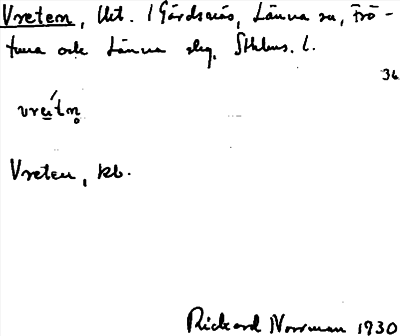 Vreten, lht. / Gårdsnäs, Länna sn, Frö-
tuna och Länna slg, Sthlms. l.
36
vre̱´tn̥
Vreten, kb.
Rickard Norrman 1930